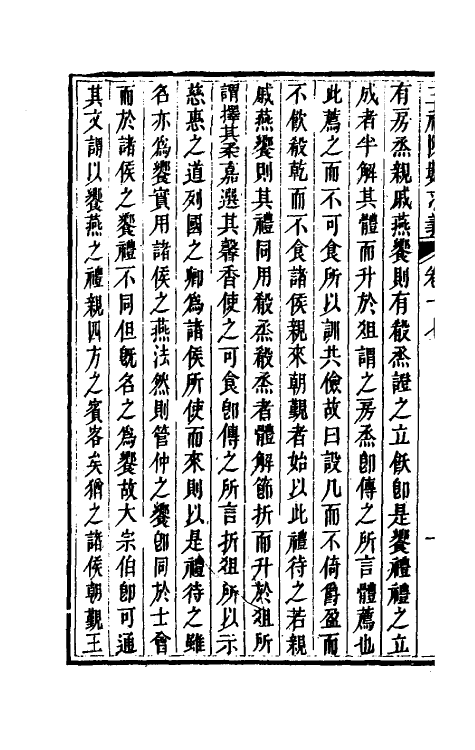 有房烝親戚燕饗則有殽烝證之立飫卽是饗禮禮之立
成者半解其體而升於俎謂之房烝卽傳之所言體薦也
此薦之而不可食所以訓共儉故曰設几而不倚爵盈而
不飲殽乾而不食諸侯親來朝覲者始以此禮待之若親
戚燕饗則其禮同用殽烝殽烝者體解節折而升於俎所
謂擇其柔嘉選其馨香使之可食卽傳之所言折俎所以示
慈惠之道列國之卿為諸侯所使而來則以是禮待之雖
名亦為饗實用諸侯之燕法然則管仲之饗卽同於士會
而於諸侯之饗禮不同但旣名之為饗故大宗伯卽可通
其文謂以饗燕之禮親四方之賓客矣猶之諸侯朝覲王